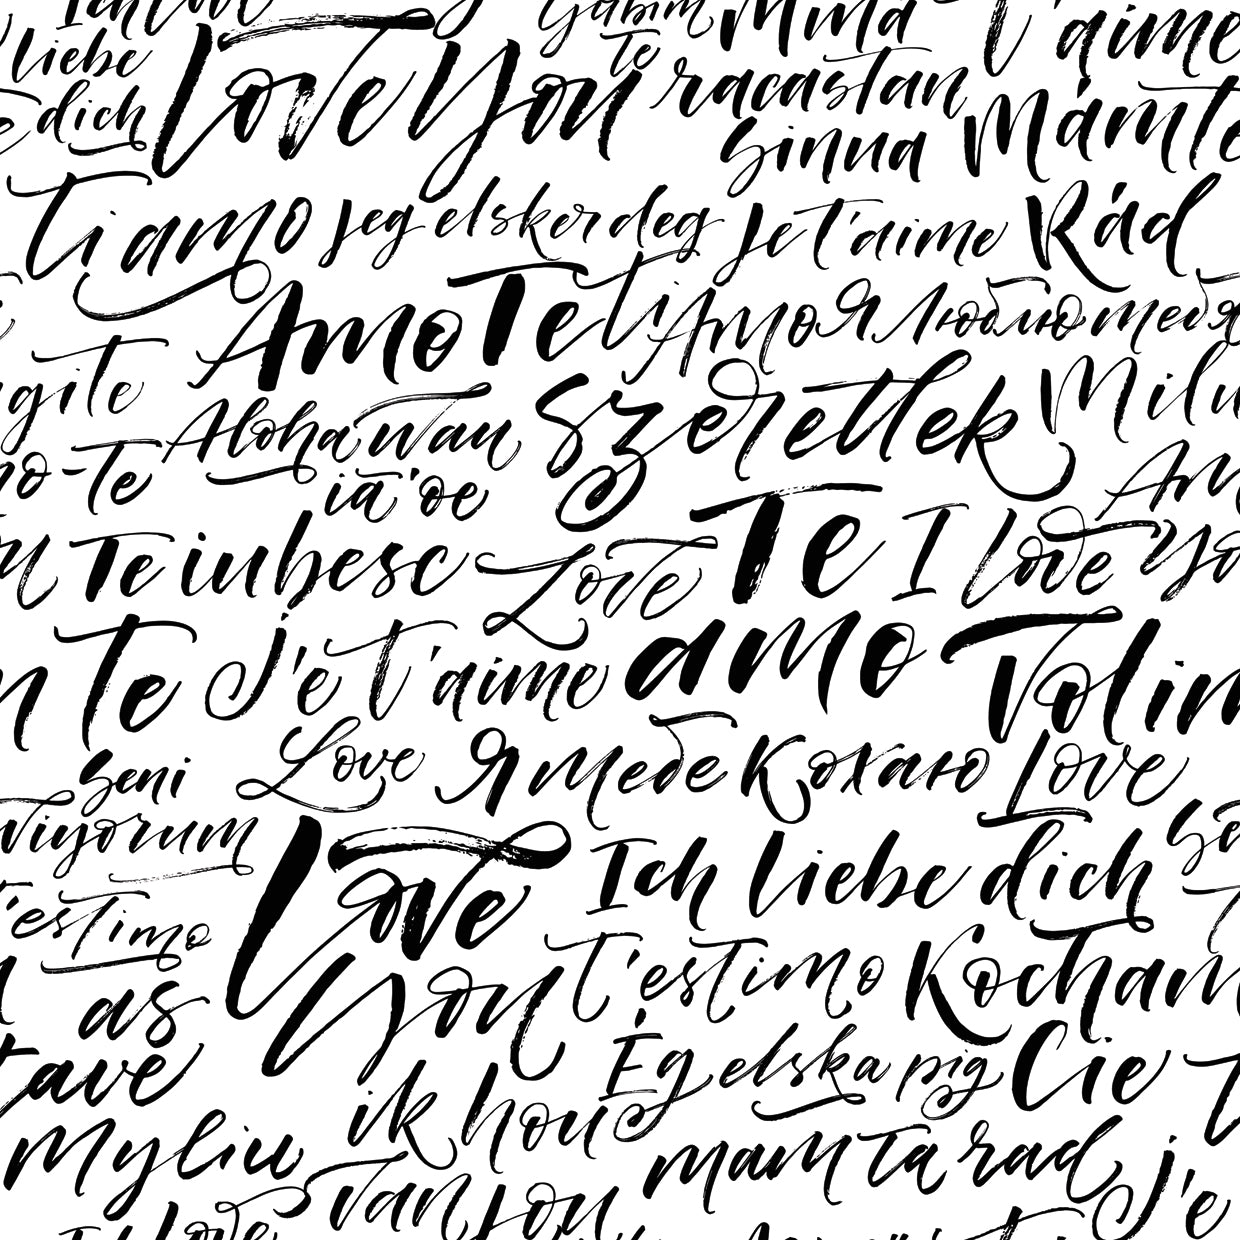 liebe
dich
Love you
te
Mina
racastan
sinua
t'aime
Mám tě
Ti amo
Jeg elsker deg
Je t'aime
Rád
Amo Te
ti Amo
Я люблю тебя
Milu
Aloha wau
iā 'oe
Szeretlek
no-te
Te iubesc
Love
Te
I love yo
Te
J'e t'aime
amo
Volim
seni
viyorum
Love
Я тебе кохаю
Love
Love
you
Ich liebe dich
t'estimo
t'estimo
Kocham
Cie
as
tave
myliu
Ég elska þig
ik hou
van jou
mam ta rad
j'e